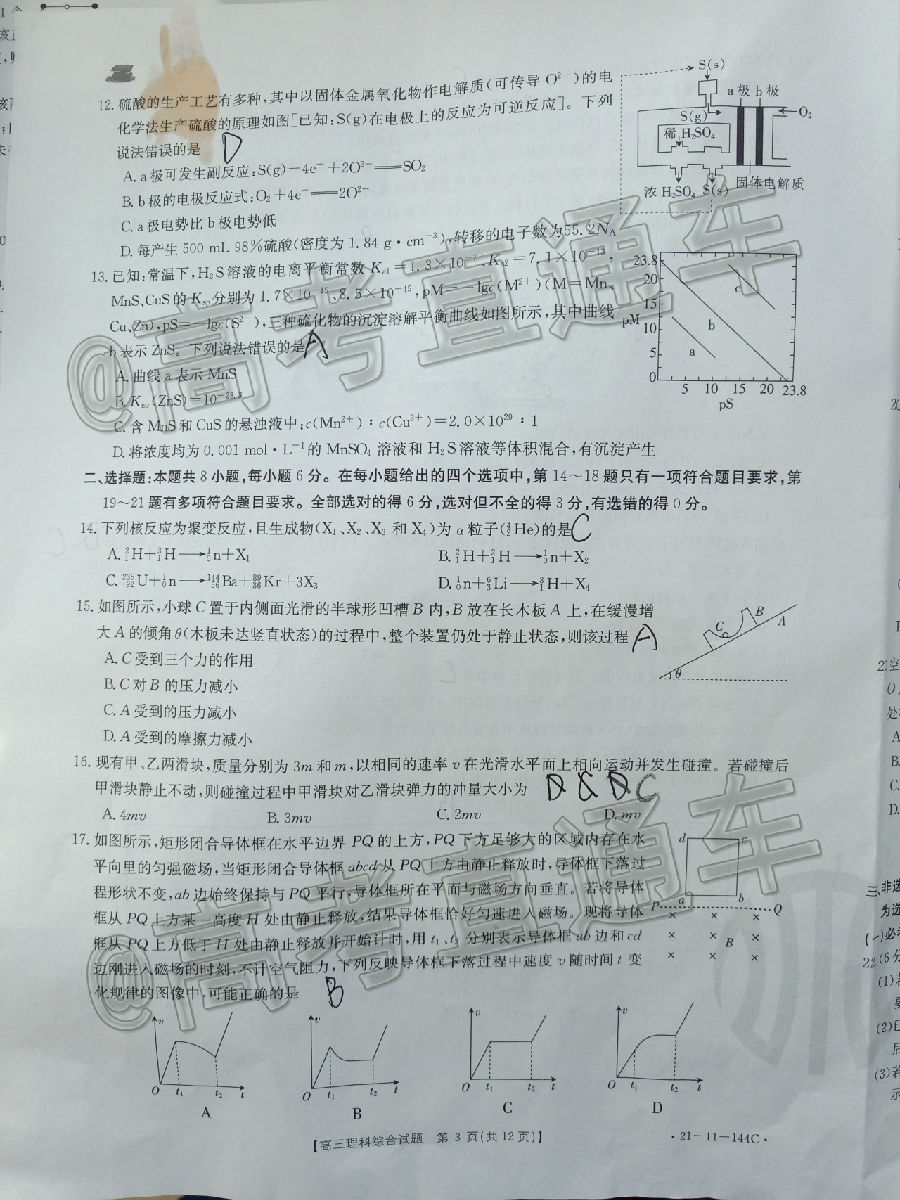 12. 硫酸的生产工艺有多种,其中以固体金属氧化物作电解质(可传导 O²⁻)的电
化学法生产硫酸的原理如图[已知:S(g)在电极上的反应为可逆反应]。下列
说法错误的是 D
A. a极可发生副反应:S(g)-4e⁻+2O²⁻══SO₂
B. b极的电极反应式:O₂+4e⁻══2O²⁻
C. a极电势比b极电势低
D. 每产生 500 mL 98%硫酸(密度为 1.84 g·cm⁻³),转移的电子数为55.2Nₐ
S(s)
a极 b极
S(g)
O₂
稀H₂SO₄
浓H₂SO₄ S(s) 固体电解质
13. 已知:常温下,H₂S溶液的电离平衡常数 Kₐ₁=1.3×10⁻⁷、Kₐ₂=7.1×10⁻¹⁵,
MnS、CuS的Kₛₚ分别为1.7×10⁻¹⁵、8.5×10⁻⁴⁵,pM=-lgc(M²⁺)(M=Mn、
Cu、Zn),pS=-lgc(S²⁻),三种硫化物的沉淀溶解平衡曲线如图所示,其中曲线
b表示ZnS。下列说法错误的是 A
A. 曲线a表示MnS
B. Kₛₚ(ZnS)=10⁻²³·⁸
C. 含MnS和CuS的悬浊液中:c(Mn²⁺):c(Cu²⁺)=2.0×10²⁹:1
D. 将浓度均为0.001 mol·L⁻¹的MnSO₄溶液和H₂S溶液等体积混合,有沉淀产生
23.8
20
15
pM 10
5
0
a b c
5 10 15 20 23.8
pS
二、选择题:本题共8小题,每小题6分。在每小题给出的四个选项中,第14~18题只有一项符合题目要求,第
19~21题有多项符合题目要求。全部选对的得6分,选对但不全的得3分,有选错的得0分。
14. 下列核反应为聚变反应,且生成物(X₁、X₂、X₃和X₄)为α粒子(⁴₂He)的是 C
A. ²₁H+³₁H→¹₀n+X₁
B. ²₁H+²₁H→¹₀n+X₂
C. ²³⁵₉₂U+¹₀n→¹⁴⁴₅₆Ba+⁸⁹₃₆Kr+3X₃
D. ¹₀n+⁶₃Li→³₁H+X₄
15. 如图所示,小球C置于内侧面光滑的半球形凹槽B内,B放在长木板A上,在缓慢增
大A的倾角θ(木板未达竖直状态)的过程中,整个装置仍处于静止状态,则该过程 A
A. C受到三个力的作用
B. C对B的压力减小
C. A受到的压力减小
D. A受到的摩擦力减小
B
C
A
θ
16. 现有甲、乙两滑块,质量分别为3m和m,以相同的速率v在光滑水平面上相向运动并发生碰撞。若碰撞后
甲滑块静止不动,则碰撞过程中甲滑块对乙滑块弹力的冲量大小为 C
A. 4mv B. 3mv C. 2mv D. mv
17. 如图所示,矩形闭合导体框在水平边界PQ的上方,PQ下方足够大的区域内存在水
平向里的匀强磁场,当矩形闭合导体框abcd从PQ上方由静止释放时,导体框下落过
程形状不变,ab边始终保持与PQ平行,导体框所在平面与磁场方向垂直。若将导体
框从PQ上方某一高度H处由静止释放,结果导体框恰好匀速进入磁场。现将导体
框从PQ上方低于H处由静止释放并开始计时,用t₁、t₂分别表示导体框ab边和cd
边刚进入磁场的时刻,不计空气阻力,下列反映导体框下落过程中速度v随时间t变
化规律的图像中,可能正确的是 B
d c
a b
P Q
× × × ×
× × B ×
× × × ×
v v v v
O t₁ t₂ t O t₁ t₂ t O t₁ t₂ t O t₁ t₂ t
A B C D
【高三理科综合试题 第3页(共12页)】
·21-11-144C·
@高考直通车
@高考直通车